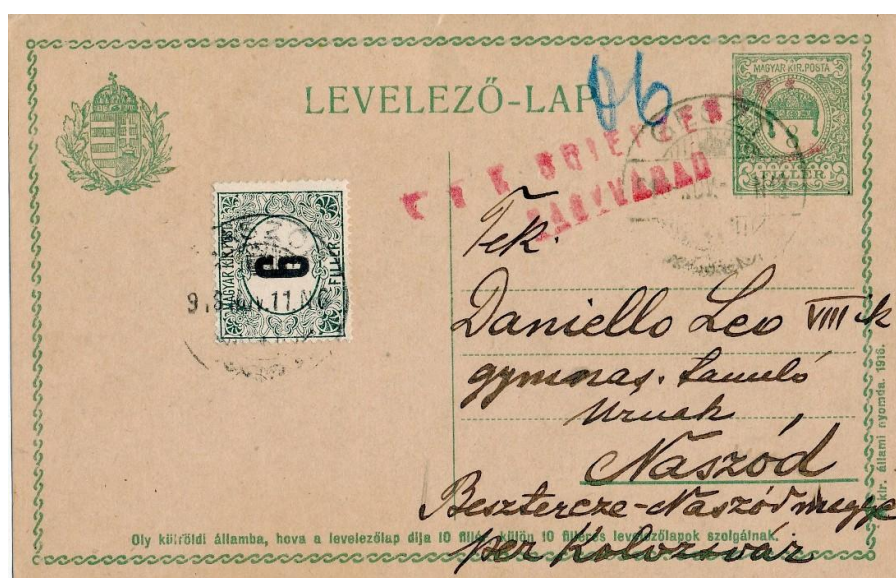 LEVELEZŐ-LAP
06
MAGYAR KIR. POSTA
FILLÉR
NAGYVÁRAD
MAGYAR KIR. POSTA
6
FILLÉR
Tek.
Daniello Leo VIII ik
gymnas. tanuló
Úrnak,
Naszód
Besztercze-Naszód megye
per Kolozsvár
Oly külföldi államba, hova a levelezőlap dija 10 fillér, külön 10 filléres levelezőlapok szolgálnak.
kir. állami nyomda. 1918.